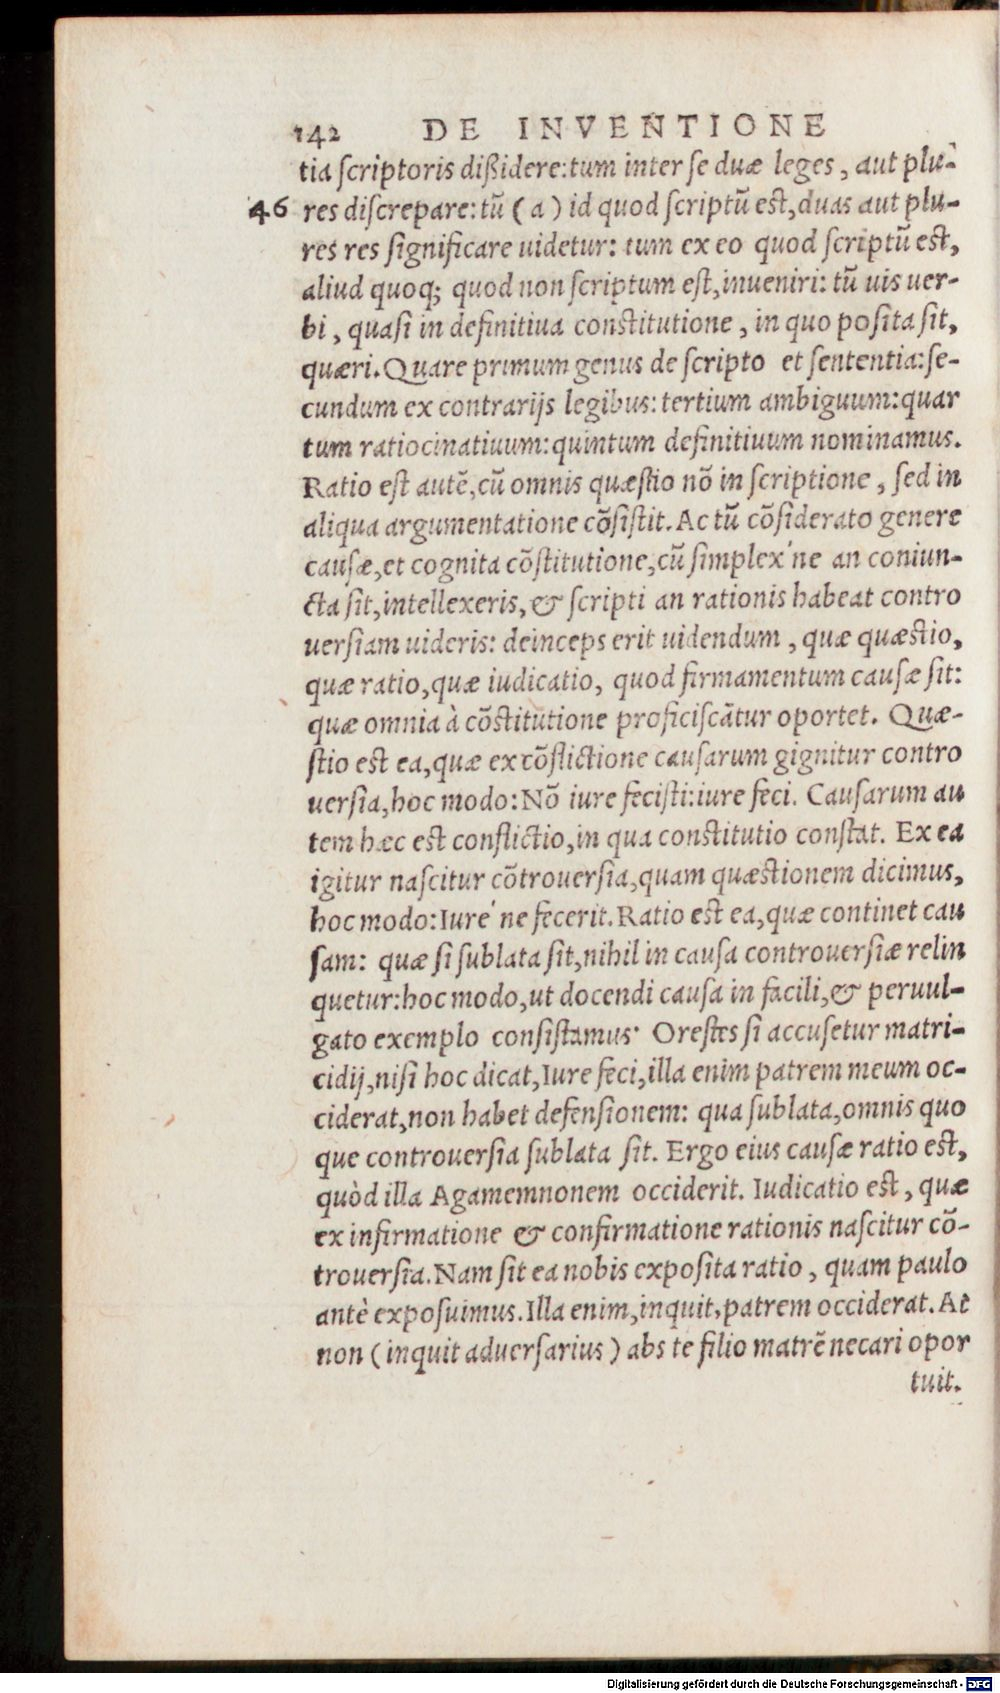 142 DE INVENTIONE
tia ſcriptoris dißidere:tum inter ſe duæ leges, aut plu-
46 res diſcrepare: tũ ( a ) id quod ſcriptũ eſt,duas aut plu-
res res ſignificare uidetur: tum ex eo quod ſcriptũ eſt,
aliud quoq; quod non ſcriptum eſt,inueniri: tũ uis uer-
bi, quaſi in definitiua conſtitutione, in quo poſita ſit,
quæri. Quare primum genus de ſcripto et ſententia:ſe-
cundum ex contrarijs legibus: tertium ambiguum:quar
tum ratiocinatiuum: quintum definitiuum nominamus.
Ratio eſt autẽ,cũ omnis quæſtio nõ in ſcriptione, ſed in
aliqua argumentatione cõſiſtit. Ac tũ cõſiderato genere
cauſæ,et cognita cõſtitutione,cũ ſimplex'ne an coniun-
cta ſit,intellexeris, & ſcripti an rationis habeat contro
uerſiam uideris: deinceps erit uidendum, quæ quæſtio,
quæ ratio,quæ iudicatio, quod firmamentum cauſæ ſit:
quæ omnia à cõſtitutione proficiſcãtur oportet. Quæ-
ſtio eſt ea,quæ ex cõflictione cauſarum gignitur contro
uerſia,hoc modo: Nõ iure feciſti:iure feci. Cauſarum au
tem hæc eſt conflictio,in qua conſtitutio conſtat. Ex ea
igitur naſcitur cõtrouerſia,quam quæſtionem dicimus,
hoc modo: Iure'ne fecerit. Ratio eſt ea,quæ continet cau
ſam: quæ ſi ſublata ſit,nihil in cauſa controuerſiæ relin
quetur:hoc modo,ut docendi cauſa in facili,& peruul-
gato exemplo conſiſtamus· Oreſtes ſi accuſetur matri-
cidij,niſi hoc dicat,Iure feci,illa enim patrem meum oc-
ciderat,non habet defenſionem: qua ſublata,omnis quo
que controuerſia ſublata ſit. Ergo eius cauſæ ratio eſt,
quòd illa Agamemnonem occiderit. Iudicatio eſt, quæ
ex infirmatione & confirmatione rationis naſcitur cõ-
trouerſia. Nam ſit ea nobis expoſita ratio, quam paulo
antè expoſuimus. Illa enim,inquit,patrem occiderat. At
non (inquit aduerſarius) abs te filio matrẽ necari opor
tuit.
Digitalisierung gefördert durch die Deutsche Forschungsgemeinschaft - DFG